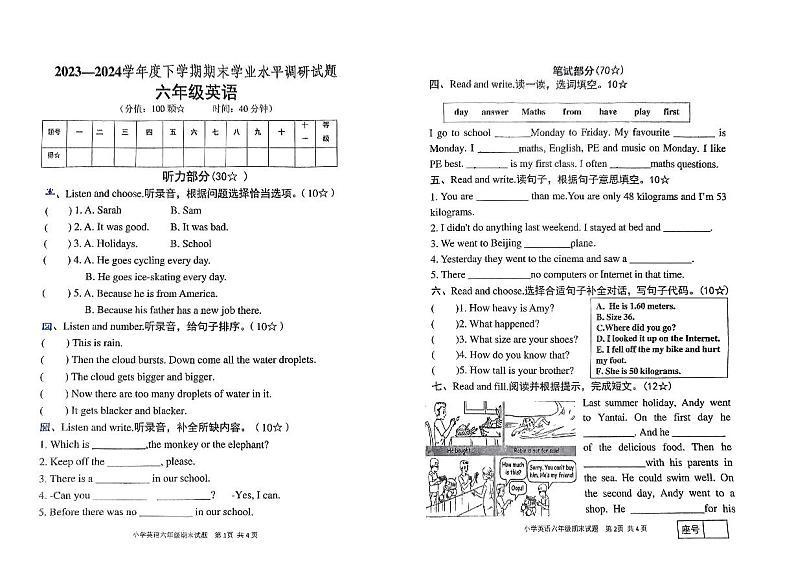 2023—2024学年度下学期期末学业水平调研试题
六年级英语
(分值：100颗☆ 时间：40分钟)
题号 一 二 三 四 五 六 七 八 九 十 十一 等级
得☆
听力部分(30☆ )
、Listen and choose.听录音，根据问题选择恰当选项。(10☆)
( ) 1. A. Sarah B. Sam
( ) 2. A. It was good. B. It was bad.
( ) 3. A. Holidays. B. School
( ) 4. A. He goes cycling every day.
B. He goes ice-skating every day.
( ) 5. A. Because he is from America.
B. Because his father has a new job there.
、Listen and number.听录音，给句子排序。(10☆)
( ) This is rain.
( ) Then the cloud bursts. Down come all the water droplets.
( ) The cloud gets bigger and bigger.
( ) Now there are too many droplets of water in it.
( ) It gets blacker and blacker.
、Listen and write.听录音，补全所缺内容。(10☆)
1. Which is __________,the monkey or the elephant?
2. Keep off the __________, please.
3. There is a __________ in our school.
4. -Can you __________ __________? -Yes, I can.
5. Before there was no __________ in our school.
小学英语六年级期末试题 第1页 共4页
笔试部分(70☆)
四、Read and write.读一读，选词填空。10☆
day answer Maths from have play first
I go to school _______Monday to Friday. My favourite _______ is
Monday. I _______maths, English, PE and music on Monday. I like
PE best. _______ is my first class. I often _______maths questions.
五、Read and write.读句子，根据句子意思填空。10☆
1. You are __________ than me.You are only 48 kilograms and I'm 53
kilograms.
2. I didn't do anything last weekend. I stayed at bed and _________.
3. We went to Beijing _________plane.
4. Yesterday they went to the cinema and saw a ____________.
5. There ____________no computers or Internet in that time.
六、Read and choose.选择合适句子补全对话，写句子代码。(10☆)
( )1. How heavy is Amy?
( )2. What happened?
( )3. What size are your shoes?
( )4. How do you know that?
( )5. How tall is your brother?
A. He is 1.60 meters.
B. Size 36.
C.Where did you go?
D. I looked it up on the Internet.
E. I fell off the my bike and hurt
my foot.
F. She is 50 kilograms.
七、Read and fill.阅读并根据提示，完成短文。(12☆)
He bought
Robin is not for sale!
How much is this?
Sorry. You can't buy him. He's my friend!
Oops!
Last summer holiday, Andy went
to Yantai. On the first day he
_________. And he _________
of the delicious food. Then he
___________with his parents in
the sea. He could swim well. On
the second day, Andy went to a
shop. He _____________for his
小学英语六年级期末试题 第2页 共4页
座号